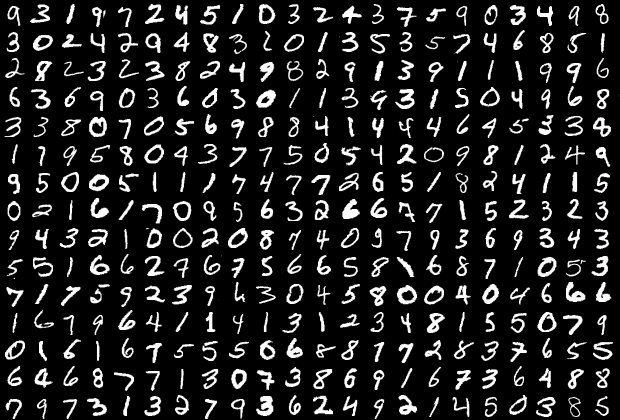 9 3 1 9 7 2 4 5 1 0 3 2 4 3 7 5 9 0 3 4 9 8
3 0 2 4 2 9 4 8 3 2 0 1 3 5 3 5 7 4 6 8 5 1
2 8 2 3 2 3 8 2 4 9 8 2 9 1 3 9 1 1 1 9 9 6
6 3 6 9 0 3 6 0 3 0 1 1 3 9 3 1 5 0 4 9 6 8
3 3 8 0 7 0 5 6 9 8 8 4 1 4 4 4 6 4 5 3 3 8
1 7 9 5 8 0 4 3 7 7 5 0 5 4 2 0 9 8 1 2 4 9
9 5 0 0 5 1 1 1 7 4 7 7 2 6 5 1 8 2 4 1 1 5
0 2 1 6 1 7 0 9 5 6 3 2 6 6 7 7 1 5 2 3 2 3
9 4 3 2 1 0 0 2 0 8 7 4 0 9 7 9 3 6 9 3 4 3
5 5 1 6 6 2 7 6 7 5 6 6 5 8 1 6 8 7 1 0 5 3
7 1 7 5 9 2 3 9 6 3 0 4 5 8 0 0 4 0 4 6 6 6
1 6 7 9 6 4 1 1 4 1 3 1 2 3 4 8 1 5 5 0 7 9
0 1 6 1 6 7 5 5 5 0 6 8 8 7 7 2 8 3 7 6 5 5
6 4 6 8 7 7 1 3 0 7 3 8 6 9 1 6 7 3 6 4 8 8
7 9 7 3 1 3 2 7 9 3 6 2 4 9 2 1 4 5 0 3 8 5